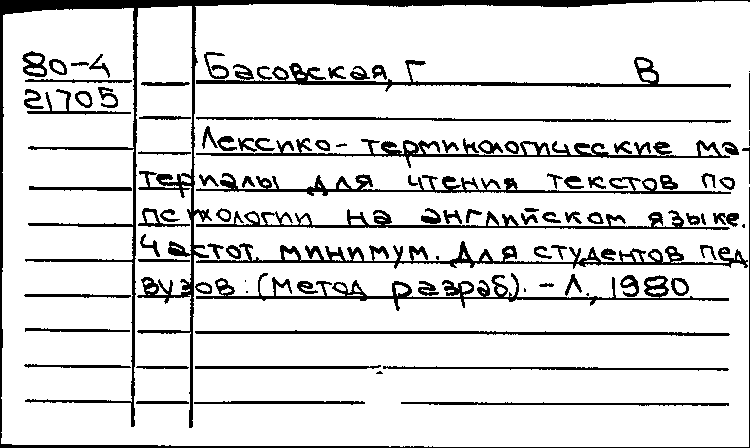 80-4 Басовская, Г В
21705
Лексико-терминологические ма-
териалы для чтения текстов по
психологии на английском языке.
Частот. минимум. Для студентов пед
вузов: (метод разраб). - Л., 1980.